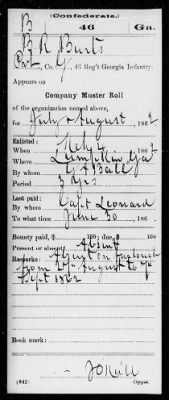 (Confederate.)
B 46 Ga.
B R Burts
Pvt, Co. G, 46 Reg't Georgia Infantry.
Appears on
Company Muster Roll
of the organization named above,
for July & August, 1862
Enlisted:
When Mch 4, 186
Where Lumpkin Ga
By whom G A Ball
Period 3 yrs
Last paid:
By whom Capt Leonard
To what time June 30, 186
Bounty paid, $ 100; due $ 100
Present or absent Absent
Remarks: Absent on furlough
from August to
Sept 1862
Book mark:
(642) Copyist.